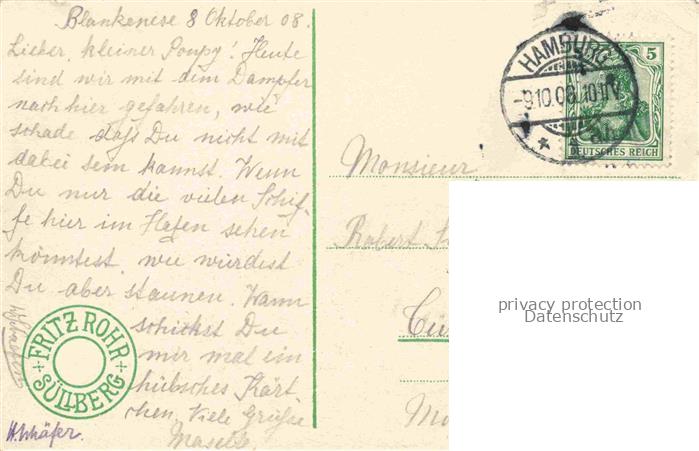 Blankenese 8 Oktober 08.
Lieber, kleiner Poupy! Heute
sind wir mit dem Dampfer
nach hier gefahren, wie
schade dass Du nicht mit
dabei sein kannst. Wenn
Du nur die vielen Schif-
fe hier im Hafen sehen
könntest, wie würdest
Du aber staunen. Wann
schickst Du
mir mal ein
hübsches Kärt-
chen. Viele Grüsse
FRITZ ROHR
SÜLLBERG
H. Schäfer.
HAMBURG
-9.10.08.10-11V
5
DEUTSCHES REICH
Monsieur
Robert
privacy protection
Datenschutz